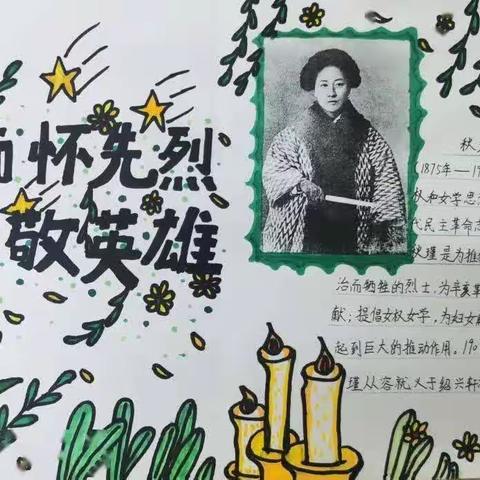 怀先烈
敬英雄
秋
(1875年—19
权和女学思
代民主革命志
秋瑾是为推
治而牺牲的烈士,为辛亥革
献;提倡女权女学,为妇女
起到巨大的推动作用。190
瑾从容就义于绍兴轩